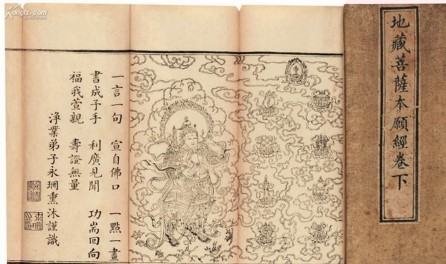 地藏菩薩本願經卷下
一言一句　宣自佛口　一點一畫
書成子手　利廣見聞　功耑回向
福我萱親　壽證無量
淨業弟子永熏沐謹識